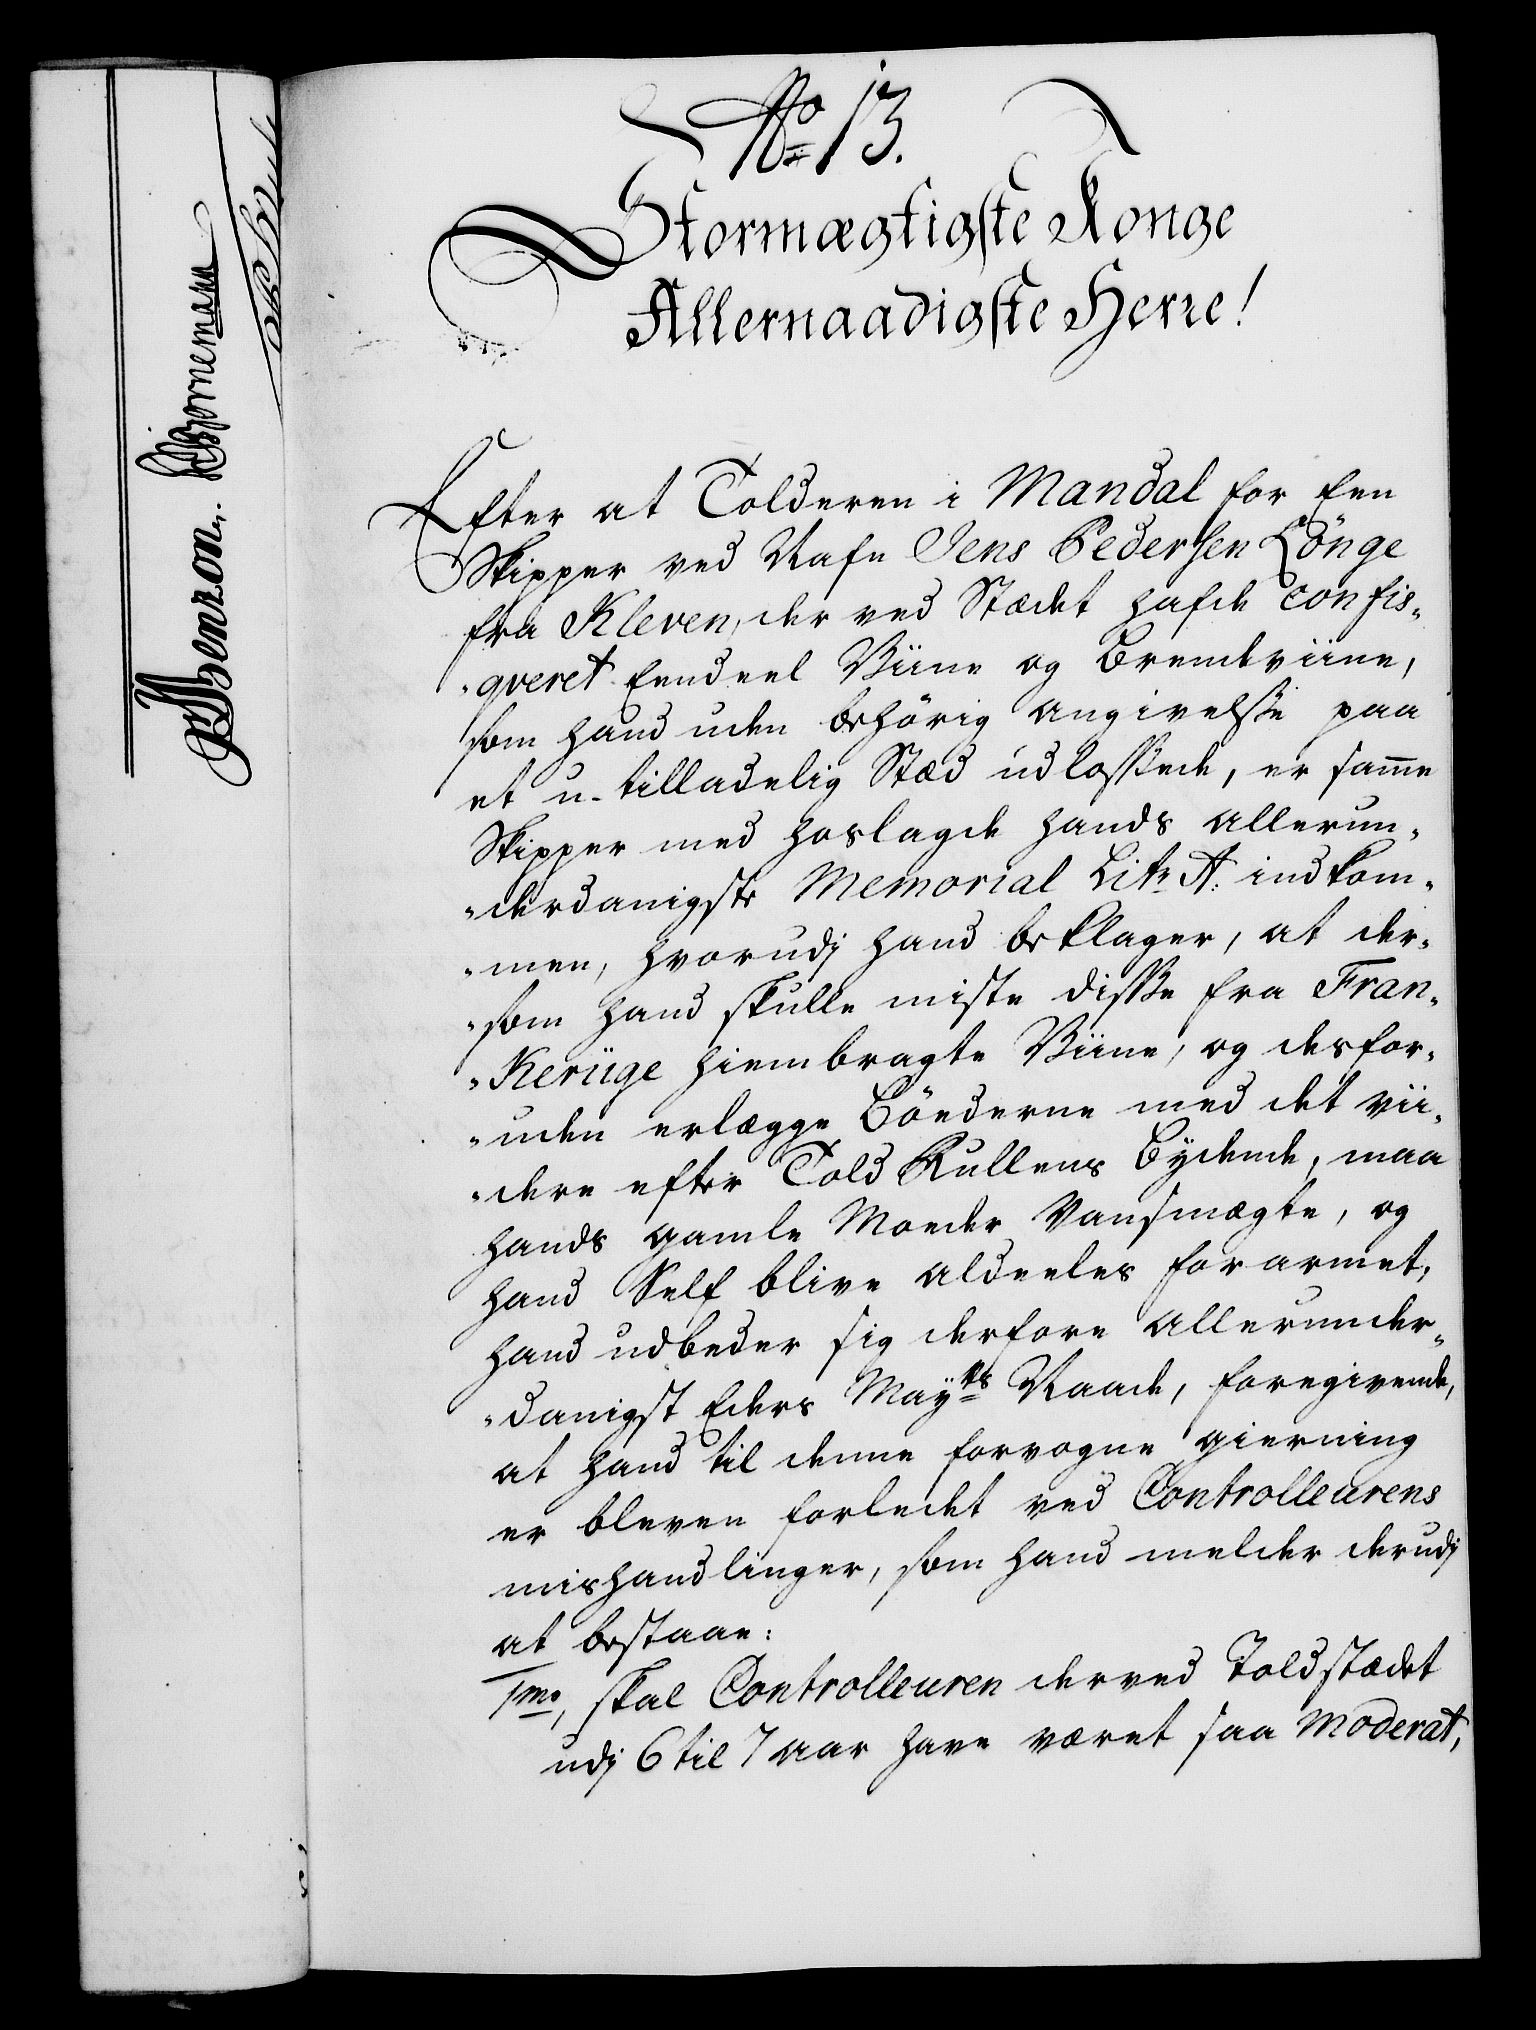 No 13.
Stormægtigste Konge
Allernaadigste Herre!
Efter at Tolderen i Mandal for Een
Skipper ved Nafn Jens Pedersen Lönge
fra Kleven, der ved Stædet hafde confis„
„qveret Eendeel Viine og Brendeviine,
som hand uden behörig angivelse paa
et u-tilladelig Stæd udlossede, er samme
Skipper med hoslagde hands allerun„
„derdanigste Memorial Litr A: indkom„
„men, hvorudj hand beklager, at der„
„som hand skulle miste disse fra Fran„
„Kerüge hiembragte Viine, og desfor„
„uden erlægge Böederne med det vii„
„dere efter Told Rullens Bydende, maa
hands gamle Moeder Vansmægte, og
hand Self blive aldeeles forarmet,
hand udbeder sig derfore allerunder„
„danigst Eders Mayts Naade, foregivende,
at hand til denne forvogne gierning
er bleven forledet ved Controlleurens
mishandlinger, som hand melder derudj
at bestaae:
1mo, skal Controlleuren derved Toldstædet
udj 6 til 7 aar have været saa Moderat,
Benzon. Bornemann